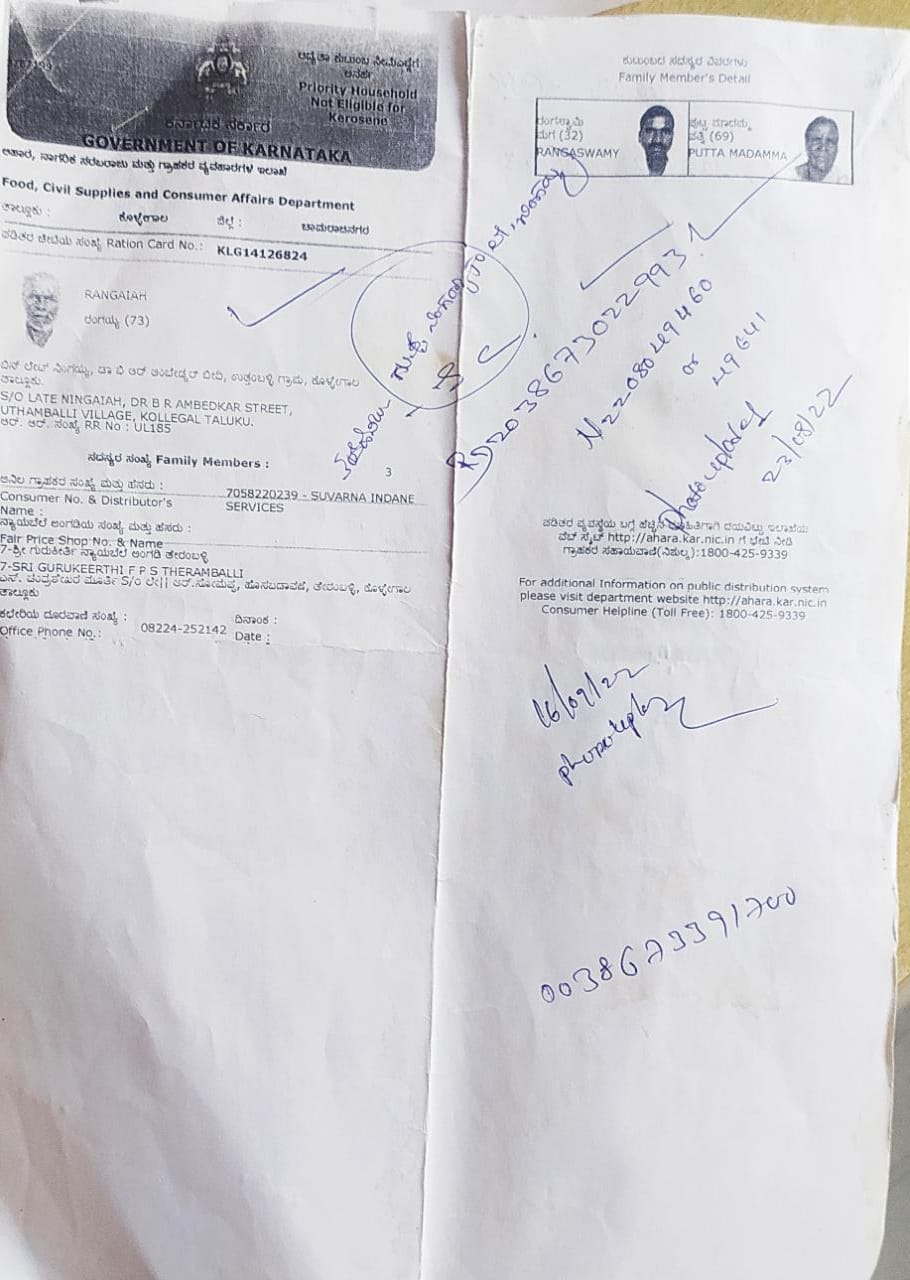 ಆದ್ಯತಾ ಕುಟುಂಬ
Priority Household
Not Eligible for
Kerosene
ಕರ್ನಾಟಕ ಸರ್ಕಾರ
GOVERNMENT OF KARNATAKA
ಆಹಾರ, ನಾಗರಿಕ ಸರಬರಾಜು ಮತ್ತು ಗ್ರಾಹಕರ ವ್ಯವಹಾರಗಳ ಇಲಾಖೆ
Food, Civil Supplies and Consumer Affairs Department
ತಾಲ್ಲೂಕು : ಕೊಳ್ಳೇಗಾಲ ಜಿಲ್ಲೆ : ಚಾಮರಾಜನಗರ
ಪಡಿತರ ಚೀಟಿಯ ಸಂಖ್ಯೆ Ration Card No.: KLG14126824
RANGAIAH
ರಂಗಯ್ಯ (73)
ಬಿನ್ ಲೇಟ್ ನಿಂಗಯ್ಯ, ಡಾ ಬಿ ಆರ್ ಅಂಬೇಡ್ಕರ್ ಬೀದಿ, ಉತ್ತಂಬಳ್ಳಿ ಗ್ರಾಮ, ಕೊಳ್ಳೇಗಾಲ
ತಾಲ್ಲೂಕು.
S/O LATE NINGAIAH, DR B R AMBEDKAR STREET,
UTHAMBALLI VILLAGE, KOLLEGAL TALUKU.
ಆರ್. ಆರ್. ಸಂಖ್ಯೆ RR No : UL185
ಸದಸ್ಯರ ಸಂಖ್ಯೆ Family Members : 3
ಅನಿಲ ಗ್ರಾಹಕರ ಸಂಖ್ಯೆ ಮತ್ತು ಹೆಸರು :
Consumer No. & Distributor's Name : 7058220239 - SUVARNA INDANE SERVICES
ನ್ಯಾಯಬೆಲೆ ಅಂಗಡಿಯ ಸಂಖ್ಯೆ ಮತ್ತು ಹೆಸರು :
Fair Price Shop No. & Name
7-ಶ್ರೀ ಗುರುಕೀರ್ತಿ ನ್ಯಾಯಬೆಲೆ ಅಂಗಡಿ ತೇರಂಬಳ್ಳಿ
7-SRI GURUKEERTHI F P S THERAMBALLI
ಎನ್. ಚಂದ್ರಶೇಖರ ಮೂರ್ತಿ S/O ಲೇ|| ಆರ್.ಸೋಮಪ್ಪ, ಹೊಸಬಡಾವಣೆ, ತೇರಂಬಳ್ಳಿ, ಕೊಳ್ಳೇಗಾಲ
ತಾಲ್ಲೂಕು
ಕಛೇರಿಯ ದೂರವಾಣಿ ಸಂಖ್ಯೆ : ದಿನಾಂಕ :
Office Phone No.: 08224-252142 Date :
ಕುಟುಂಬದ ಸದಸ್ಯರ ವಿವರಗಳು
Family Member's Detail
ರಂಗಸ್ವಾಮಿ
ಮಗ (32)
RANGASWAMY
ಪುಟ್ಟ ಮಾದಮ್ಮ
ಪತ್ನಿ (69)
PUTTA MADAMMA
RD2038673022993
N22080249460
or
49641
photo uplodef
23/08/22
ಪಡಿತರ ವ್ಯವಸ್ಥೆಯ ಬಗ್ಗೆ ಹೆಚ್ಚಿನ ಮಾಹಿತಿಗಾಗಿ ದಯವಿಟ್ಟು ಇಲಾಖೆಯ
ವೆಬ್ ಸೈಟ್ http://ahara.kar.nic.in ಗೆ ಭೇಟಿ ನೀಡಿ
ಗ್ರಾಹಕರ ಸಹಾಯವಾಣಿ(ನಿಶುಲ್ಕ):1800-425-9339
For additional Information on public distribution system
please visit department website http://ahara.kar.nic.in
Consumer Helpline (Toll Free): 1800-425-9339
0038673391700